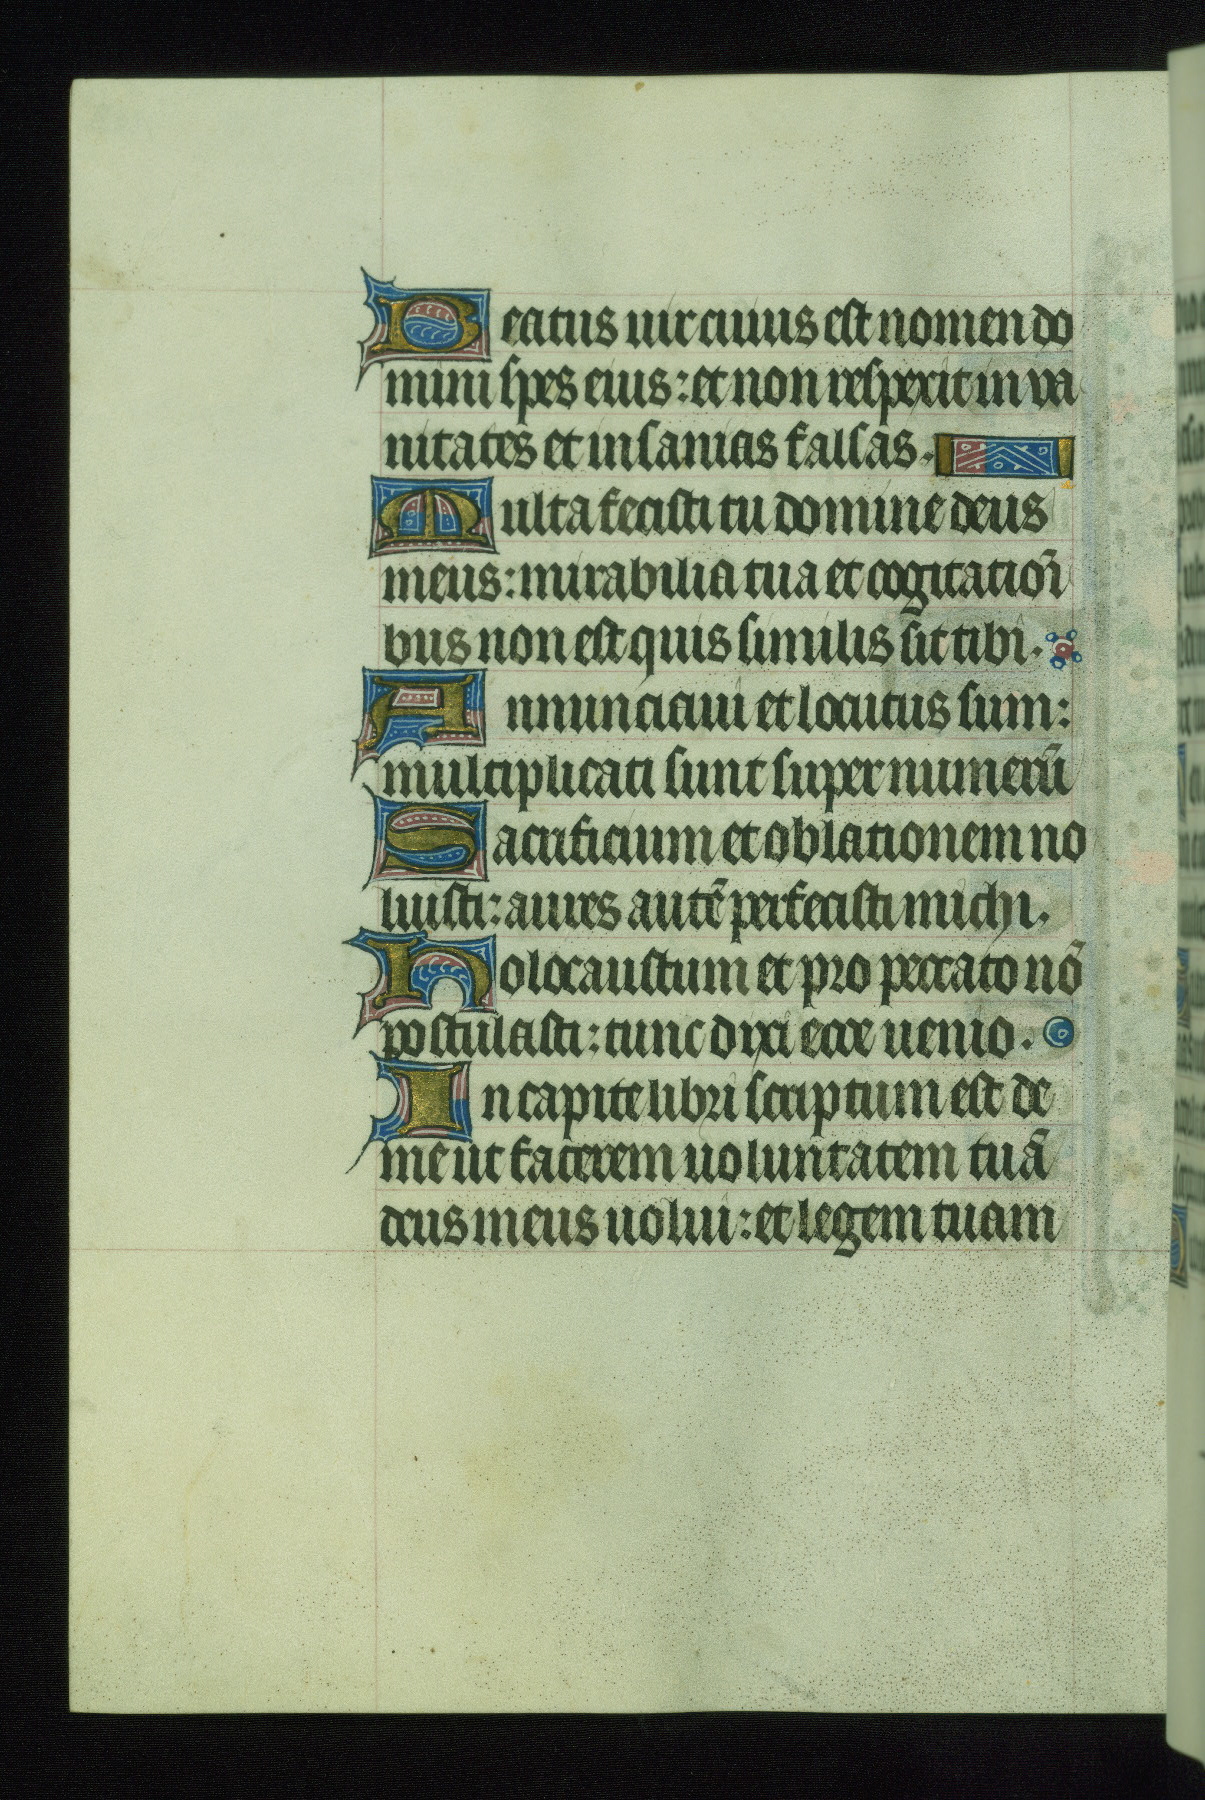 Beatus uir cuius est nomen do
mini spes eius: et non respexit in va
nitates et insanias falsas.
Multa fecisti tu domine deus
meus: mirabilia tua et cogitationi
bus non est quis similis sit tibi.
Annunciaui et locutus sum:
multiplicati sunt super numerū
Sacrificium et oblationem no
luisti: aures autē perfecisti michi.
Holocaustum et pro peccato nō
postulasti: tunc dixi ecce uenio.
In capite libri scriptum est de
me ut facerem uoluntatem tuā
deus meus uolui: et legem tuam